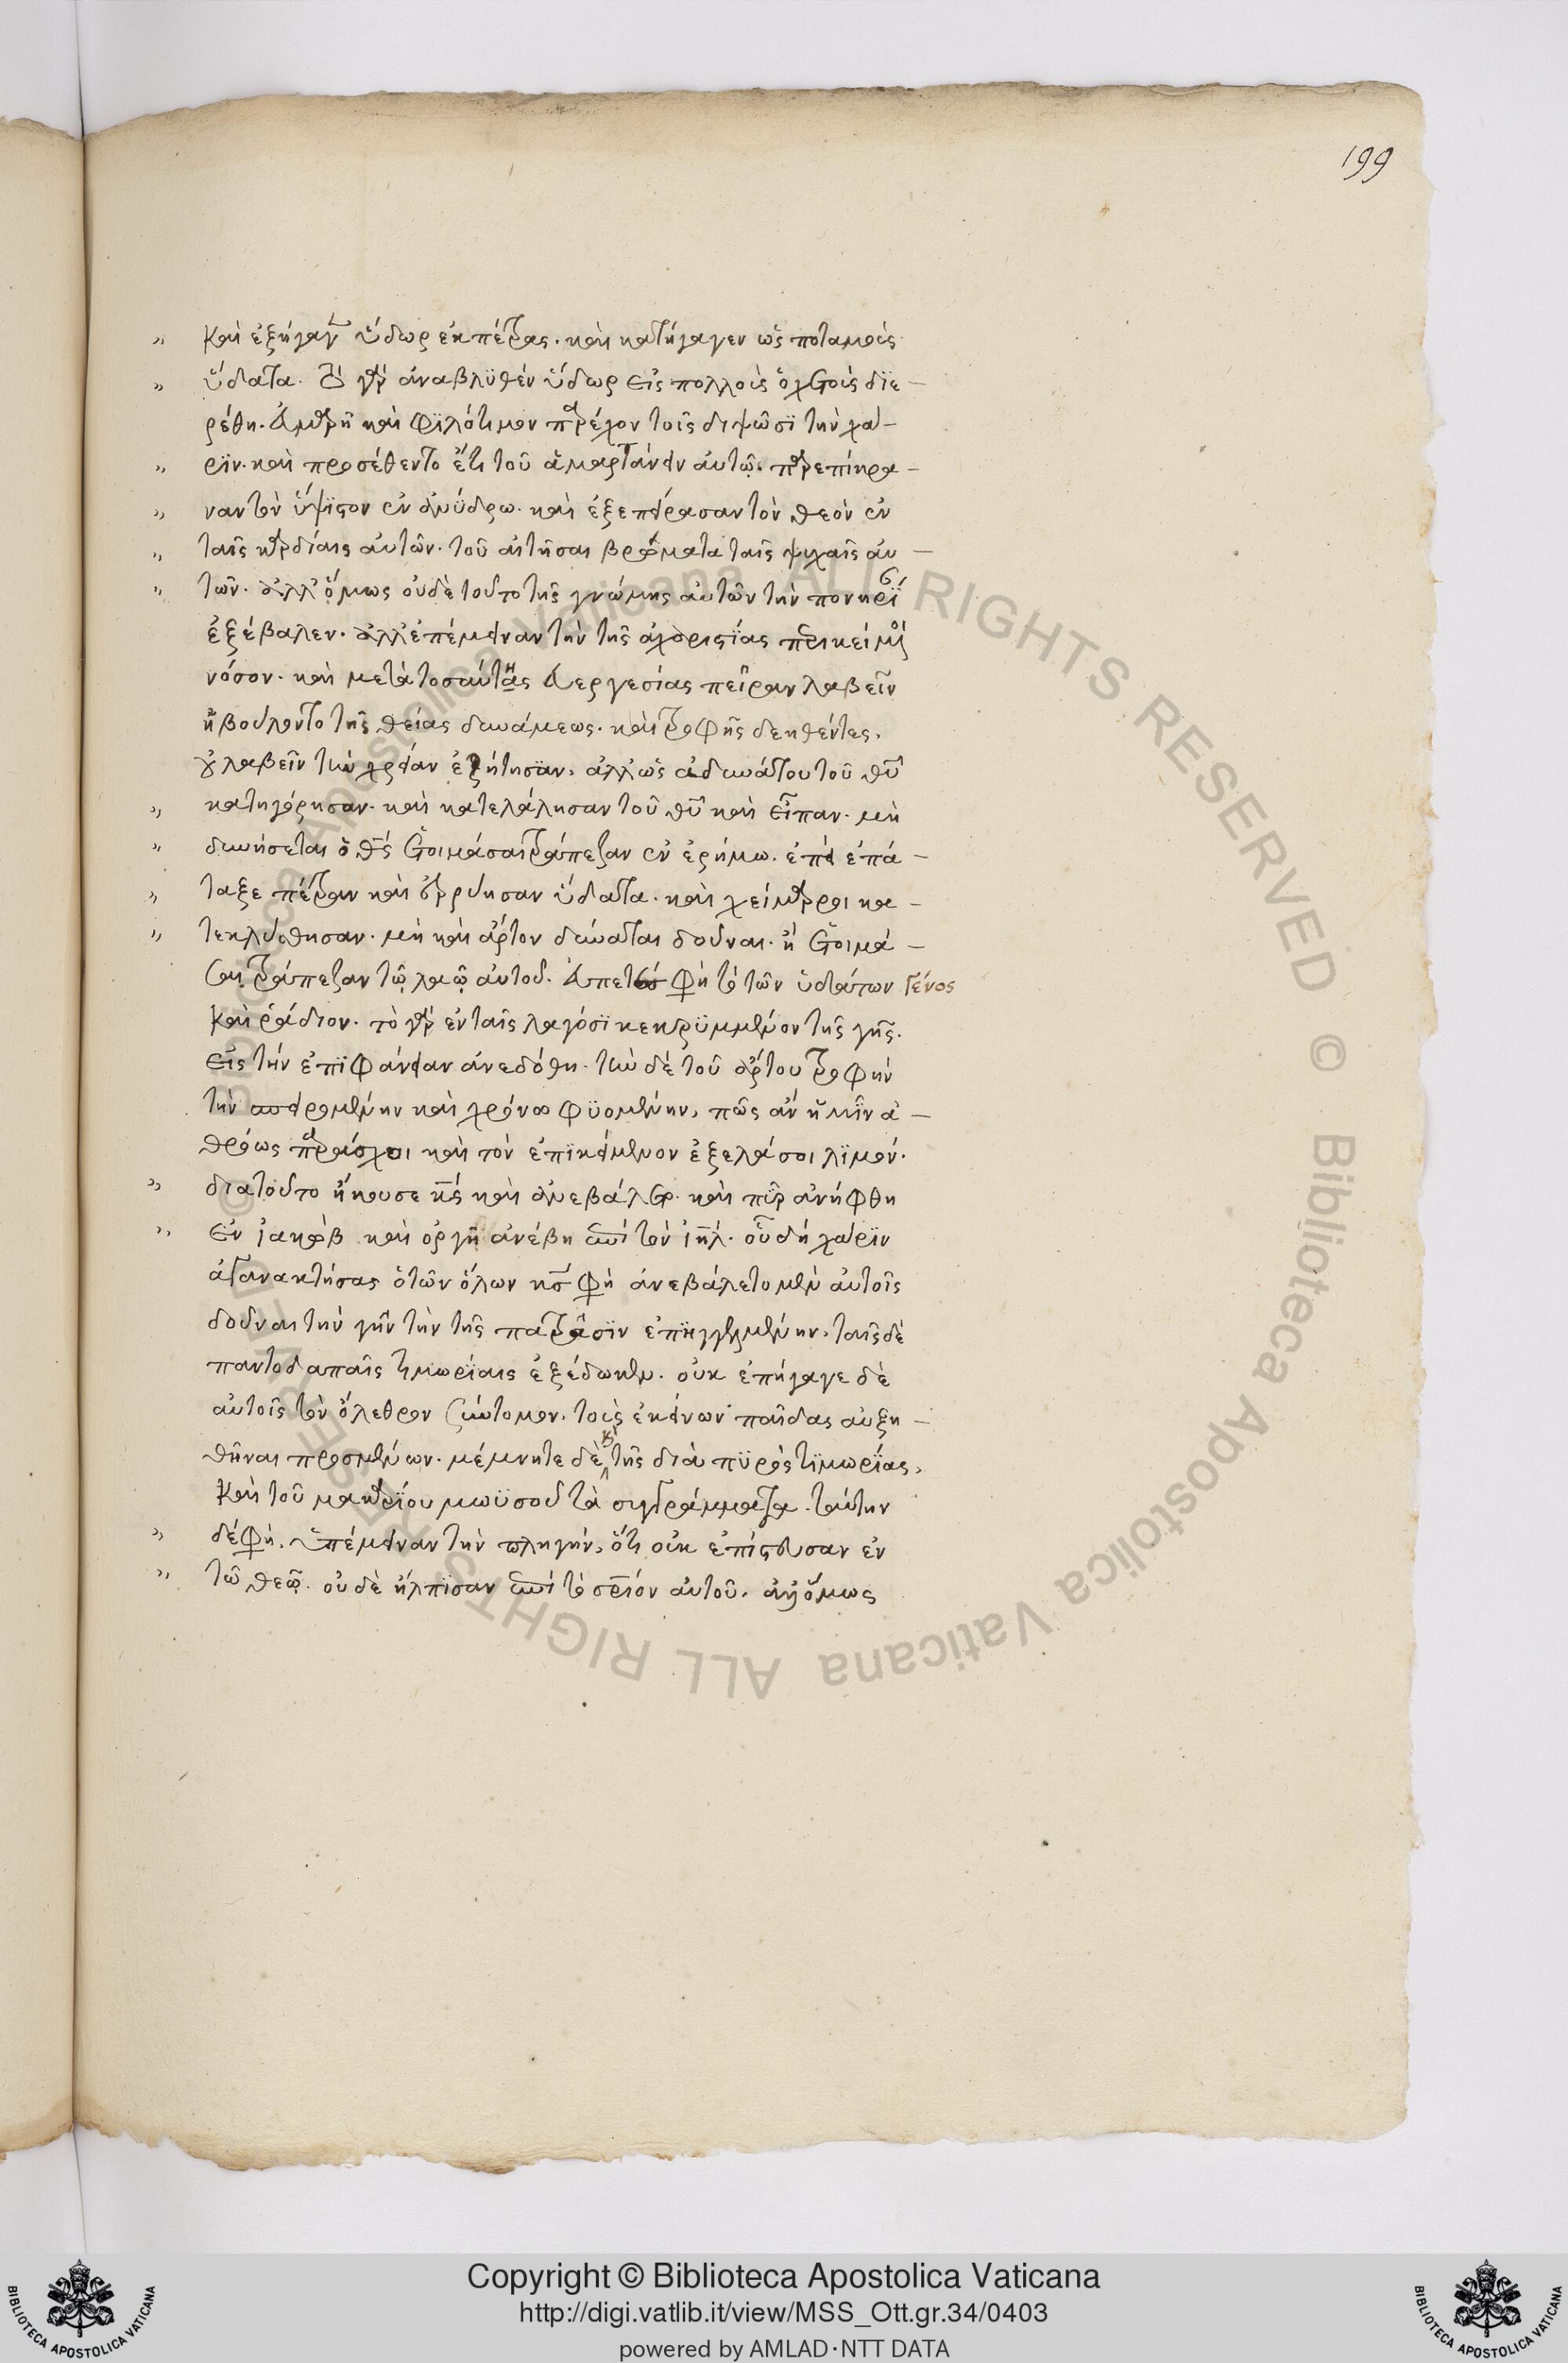 199
καὶ ἐξήγαγεν ὕδωρ ἐκ πέτρας. καὶ κατήγαγεν ὡς ποταμοὺς
ὕδατα. τὸ γὰρ ἀναβλϋθὲν ὕδωρ εἰς πολλοὺς ὀχετοὺς δϊε –
ρέθη. καὶ φϊλότιμον παρέχον τοῖς διψῶσϊ τὴν χά –
ρϊν. καὶ προσέθεντο ἔτι τοῦ ἁμαρτάνειν αὐτῷ. παρεπίκρα –
ναν τὸν ὕψϊστον ἐν ἀνΰδρω. καὶ ἐξεπείρασαν τὸν θεὸν ἐν
ταῖς καρδίαις αὐτῶν. τοῦ αἰτῆσαι βρώματα ταῖς ψυχαῖς αὐ –
τῶν. ἀλλ' ὅμως οὐδὲ τοῦτο τῆς γνώμης αὐτῶν τὴν πονηρΐ
ἐξέβαλεν. ἀλλ' ἐπέμειναν τὴν τῆς ἀχαριστίας περικείμενοι
νόσον. καὶ μετὰ τοσαύτας εὐεργεσίας πεῖραν λαβεῖν
ἠβούλοντο τῆς θείας δυνάμεως. καὶ τροφῆς δεηθέντες,
οὐ λαβεῖν τὴν χρείαν ἐζήτησαν, ἀλλ' ὡς ἀδυνάτου τοῦ θῦ
κατηγόρησαν. καὶ κατελάλησαν τοῦ θῦ καὶ εἶπαν. μὴ
δυνήσεται ὁ θς ἑτοιμάσαι τράπεζαν ἐν ἐρήμω. ἐπεὶ ἐπά –
ταξε πέτραν καὶ ἐρρύησαν ὕδατα. καὶ χείμαρροι κα –
τεκλύσθησαν. μὴ καὶ ἄρτον δύναται δοῦναι. ἢ ἑτοιμά –
σαι τράπεζαν τῷ λαῷ αὐτοῦ. φὴ τὸ τῶν ὑδάτων γένος
καὶ ῥάδιον. τὸ γὰρ ἐν ταῖς λαγόσϊ κεκρϋμμένον τῆς γῆς.
εἰς τὴν ἐπϊφάνειαν ἀνεδόθη. τὴν δὲ τοῦ ἄρτου τροφὴν
τὴν σπειρομένην καὶ χρόνω φϋομένην, πῶς ἂν ἡμῖν ἀ –
θρόως παράσχοι καὶ τὸν ἐπϊκείμενον ἐξελάσοι λϊμόν.
διατοῦτο ἤκουσε κς καὶ ἀνεβάλετο. καὶ πῦρ ἀνήφθη
ἐν ϊακὼβ καὶ ὀργὴ ἀνέβη ἐπὶ τὸν ιηλ. οὗ δὴ χάρϊν
ἀγανακτήσας ὁ τῶν ὅλων κς φὴ ἀνεβάλετο μὲν αὐτοῖς
δοῦναι τὴν γῆν τὴν τῆς πατράσϊν ἐπηγγελμένην, ταῖς δὲ
παντοδαπαῖς τιμωρίαις ἐξέδωκεν. οὐκ ἐπήγαγε δὲ
αὐτοῖς τὸν ὄλεθρον σύντομον. τοὺς ἐκείνων παῖδας αὐξη –
θῆναι προσμένων. μέμνηται δὲ καὶ τῆς διὰ πϋρὸς τϊμωρίας,
καὶ τοῦ μακαρίου μωϋσοῦ τὰ συγγράμματα. ταύτην
δέ φη, ὑπέμειναν τὴν πληγήν, ὅτι οὐκ ἐπίστευσαν ἐν
τῶ θεῷ. οὐδὲ ἤλπϊσαν ἐπὶ τὸ σριόν αὐτοῦ. ἀλλ' ὅμως
Copyright © Biblioteca Apostolica Vaticana
http://digi.vatlib.it/view/MSS_Ott.gr.34/0403
powered by AMLAD·NTT DATA